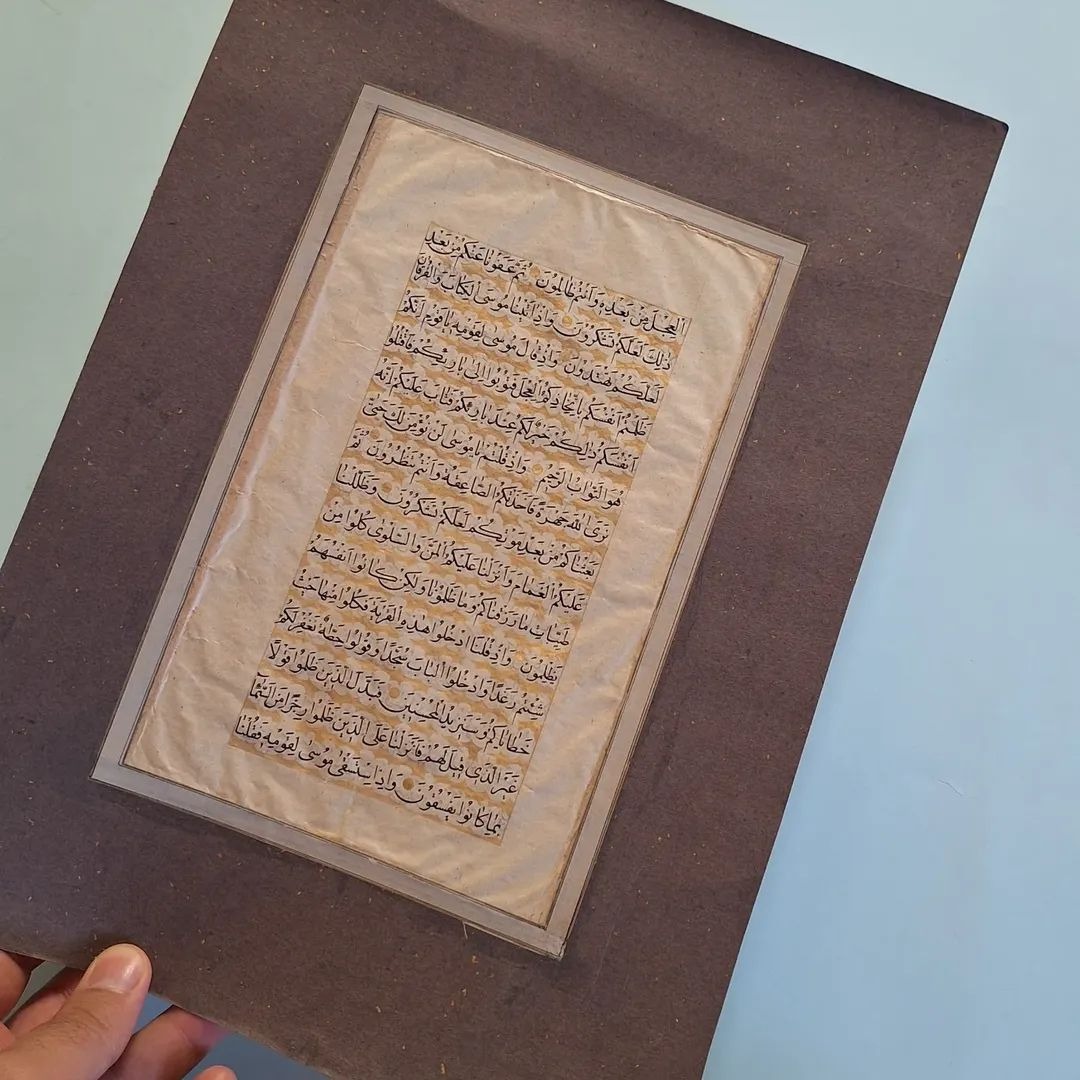 العجل من بعده وانتم ظالمون ثم عفونا عنكم من بعد
ذلك لعلكم تشكرون واذ اتينا موسى الكتاب والفرقان
لعلكم تهتدون واذ قال موسى لقومه ياقوم انكم
ظلمتم انفسكم باتخاذكم العجل فتوبوا الى بارئكم فاقتلوا
انفسكم ذلكم خير لكم عند بارئكم فتاب عليكم انه
هو التواب الرحيم واذ قلتم ياموسى لن نؤمن لك حتى
نرى الله جهرة فاخذتكم الصاعقة وانتم تنظرون ثم
بعثناكم من بعد موتكم لعلكم تشكرون وظللنا
عليكم الغمام وانزلنا عليكم المن والسلوى كلوا من
طيبات ما رزقناكم وما ظلمونا ولكن كانوا انفسهم
يظلمون واذ قلنا ادخلوا هذه القرية فكلوا منها حيث
شئتم رغدا وادخلوا الباب سجدا وقولوا حطة نغفر لكم
خطاياكم وسنزيد المحسنين فبدل الذين ظلموا قولا
غير الذي قيل لهم فانزلنا على الذين ظلموا رجزا من السماء
بما كانوا يفسقون واذ استسقى موسى لقومه فقلنا